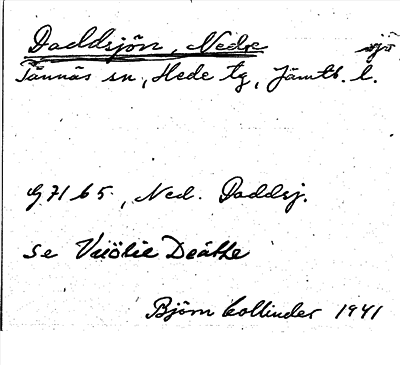 Daddsjön, Nedre sjö
Tännäs sn, Hede tg, Jämtl. l.
G 71 b 5, Ned. Daddsj.
se Vuölie Deätte
Björn Collinder 1941